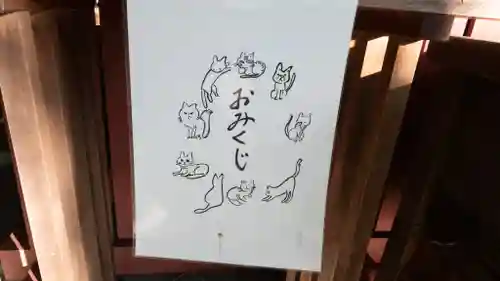 おみくじ